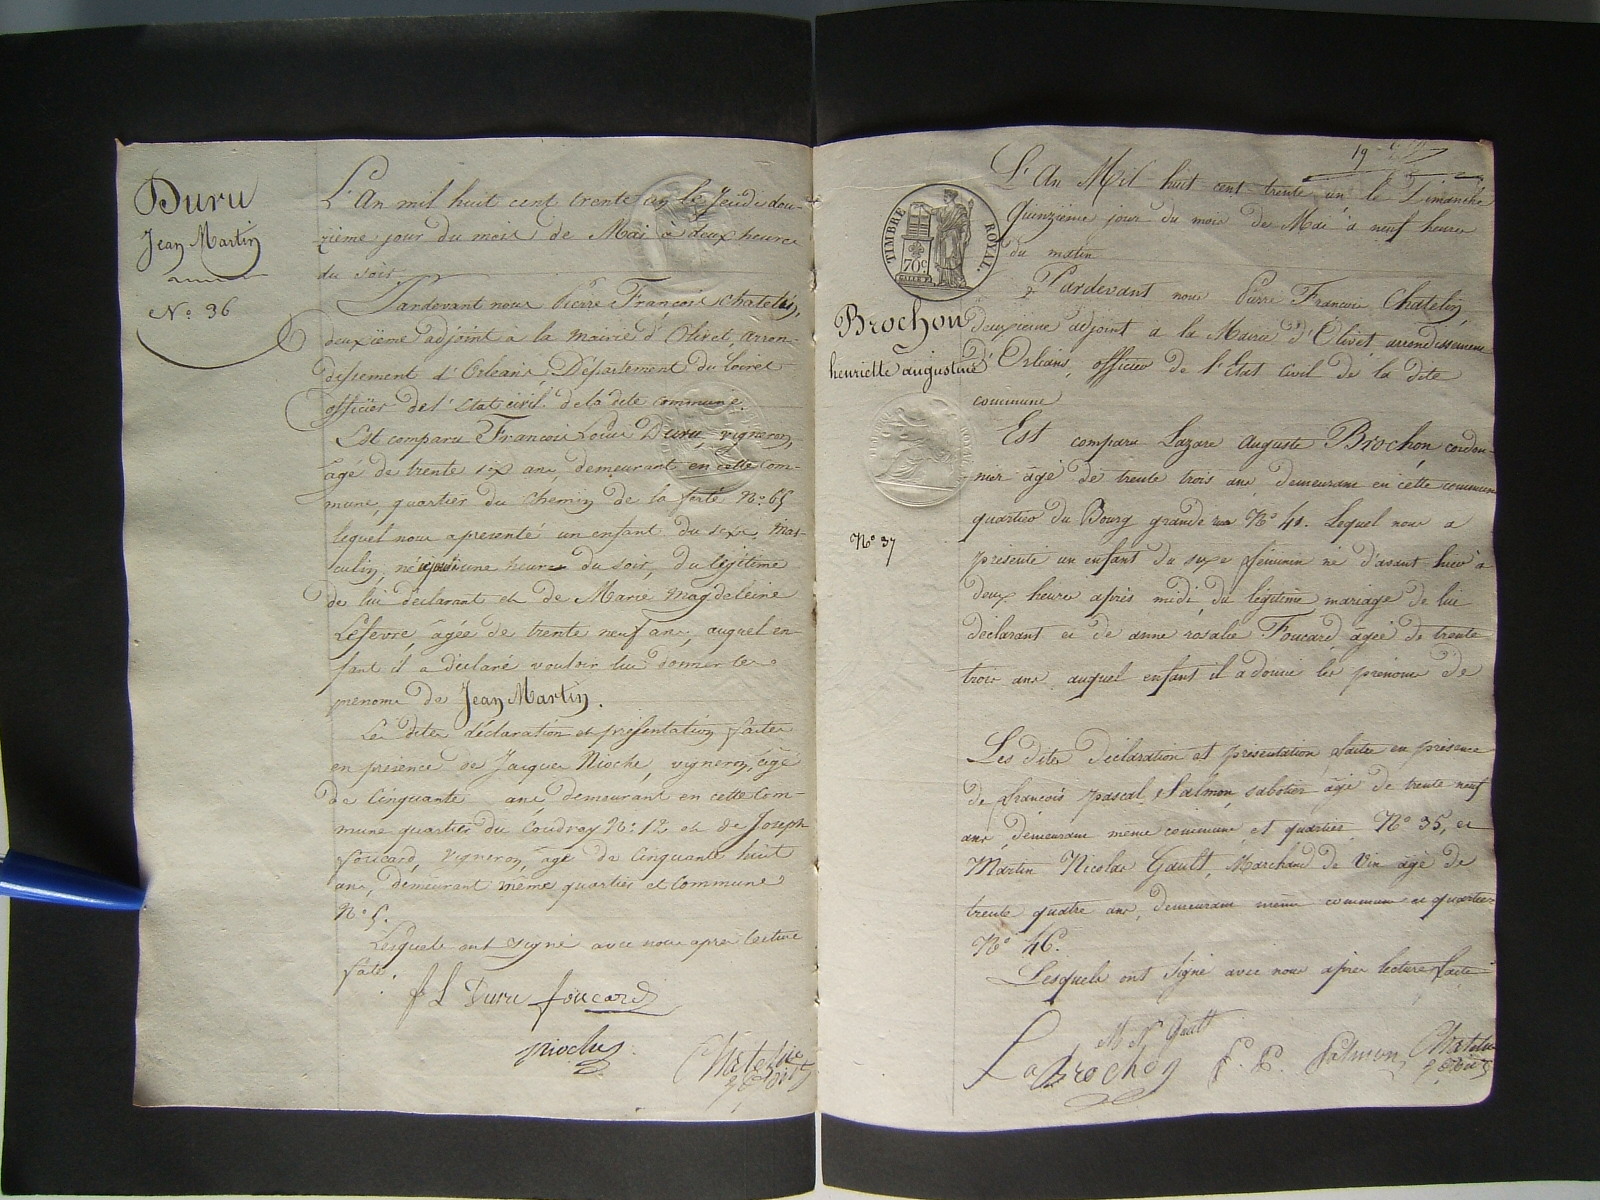 Duru
Jean Martin
N.o 36
L'An mil huit cent trente un le Jeudi dou-
zième jour du mois de Mai à deux heures
du soir
Pardevant nous Pierre François Chatelin,
deuxième adjoint à la mairie d'Olivet, arron-
dissement d'Orléans, Département du Loiret
officier de l'état civil de la dite commune.
Est comparu François Louis Duru, vigneron,
âgé de trente six ans, demeurant en cette com-
mune, quartier du chemin de la ferté N.o 65
lequel nous a présenté un enfant du sexe mas-
culin, né une heure du soir, du légitime
de lui déclarant et de Marie Magdeleine
Lefevre, âgée de trente neuf ans, auquel en-
fant il a déclaré vouloir lui donner les
prenoms de Jean Martin.
Les dites déclaration et présentation faites
en présence de Jacques Nioche, vigneron, âgé
de Cinquante ans, demeurant en cette Com-
mune quartier du Coudray N.o 12 et de Joseph
foucard, vigneron, âgé de Cinquante huit
ans, demeurant même quartier et Commune
N.o 5.
Lesquels ont signé avec nous après lecture
faite.
f L Duru foucard
nioche
Chatelin
19
TIMBRE ROYAL.
70c
L'An Mil huit cent trente un le Dimanche
Quinzième jour du mois de Mai à neuf heures
du matin
Pardevant nous Pierre François Chatelin,
Brochon
deuxième adjoint à la Mairie d'Olivet arrondissement
henriette augustine
d'Orléans, officier de l'Etat Civil de la dite
commune
Est comparu Lazare Auguste Brochon cordon-
nier âgé de trente trois ans demeurant en cette commune
quartier du Bourg grande rue N.o 41. Lequel nous a
N.o 37
présenté un enfant du sexe féminin né d'avant hier à
deux heures après midi, du légitime mariage de lui
déclarant et de anne rosalie Foucard, agée de trente
trois ans auquel enfant il a donné les prénoms de
Les dites Déclaration et présentation faites en présence
de françois pascal Salmon, sabotier âgé de trente neuf
ans, demeurant même commune et quartier N.o 35, et
Martin Nicolas Gault, Marchand de Vin âgé de
trente quatre ans, demeurant même commune et quartier
N.o 46.
Lesquels ont signé avec nous après lecture faite
M N Gault
La brochon F. P. Salmon Chatelin